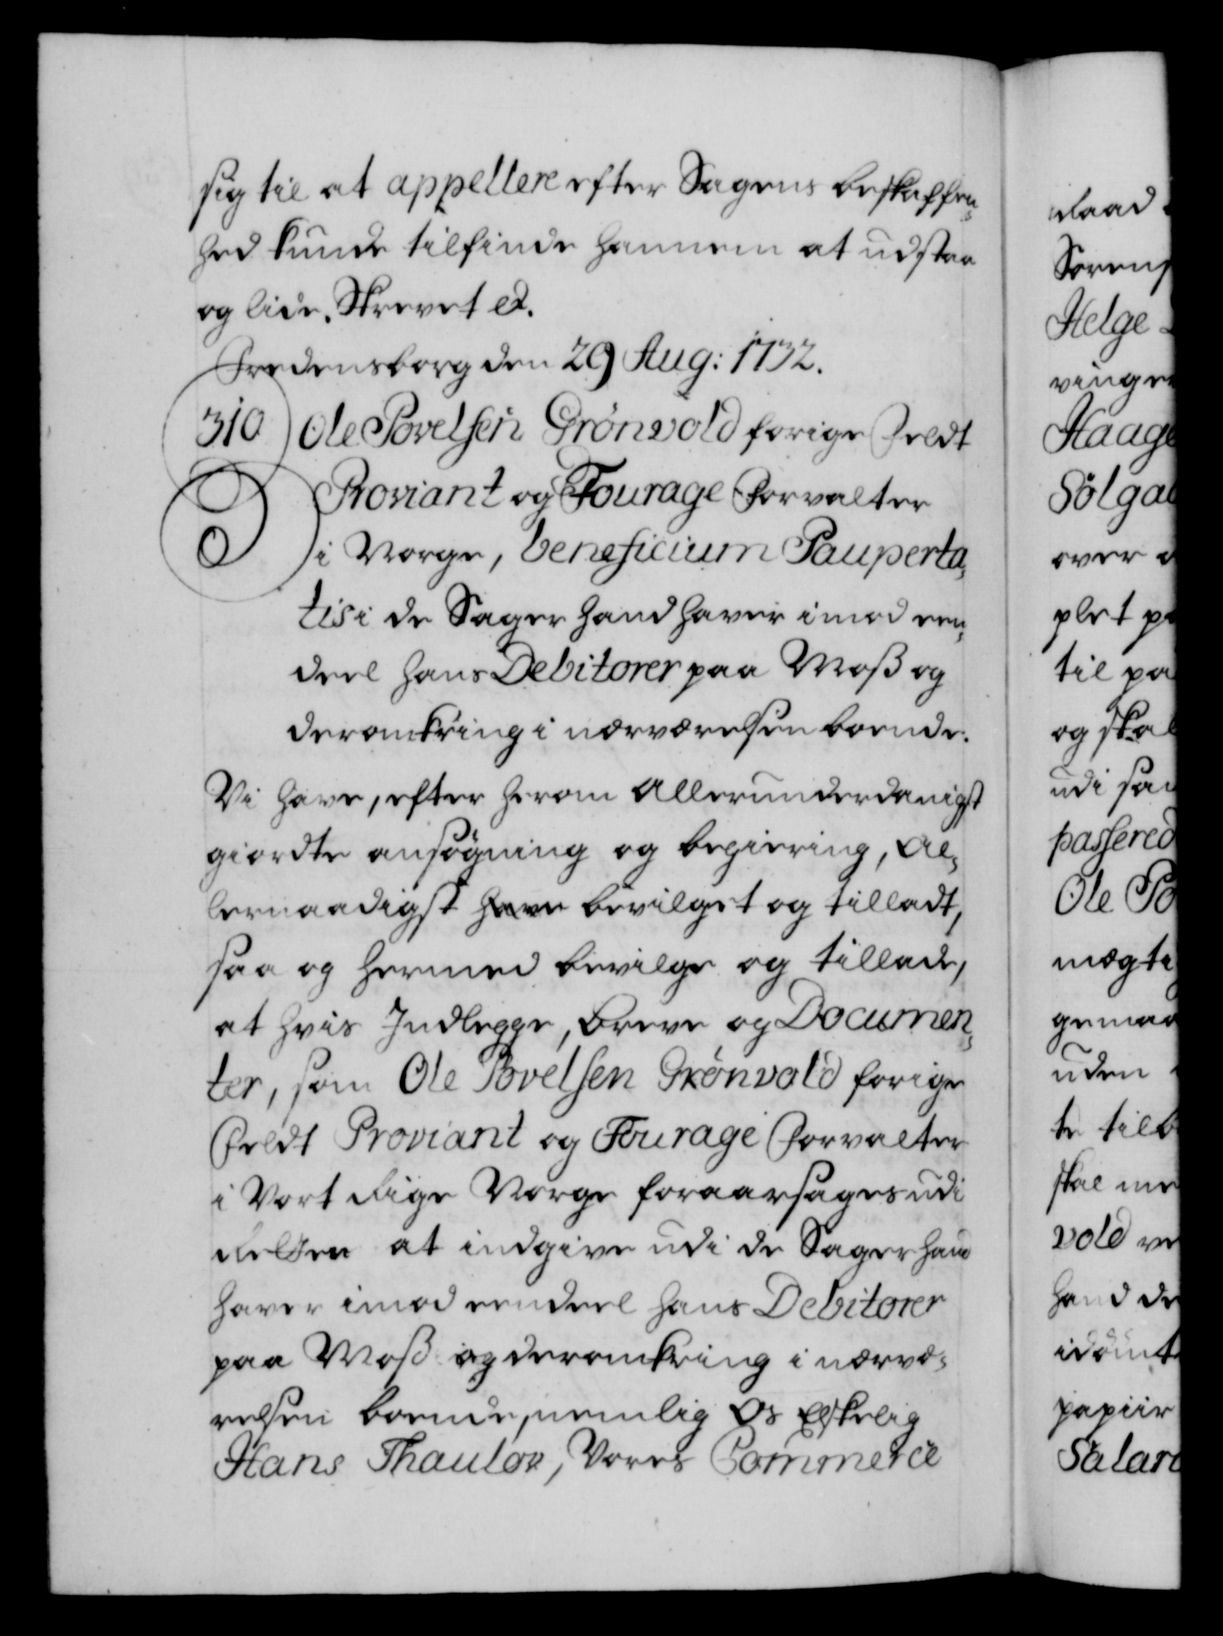 sig til at appellere efter Sagens beskaffen-
hed kunde tilfinde hannem at udstaa
og lide. Skrevet et.
Fredensborg den 29 Aug: 1732.
310 Ole Povelsen Grönvold forige Feldt
Proviant og Fourage Forvalter
i Norge, beneficium Pauperta-
tis i de Sager hand haver imod een-
deel hans Debitorer paa Moss og
deromkring i nærværelsen boende.
Vi have, efter herom allerunderdanigst
giordte ansögning og begiering, al-
lernaadigst have bevilget og tilladt,
saa og hermed bevilge og tillade,
at hvis Indlegge, breve og Documen-
ter, som Ole Povelsen Grönvold forige
Feldt Proviant og Fourage Forvalter
i Vort Rige Norge foraarsages udi
Retten at indgive udi de Sager hand
haver imod eendeel hans Debitorer
paa Moss og deromkring i nærvæ-
relsen boende, nemlig Os Elskelig
Hans Thaulov, Vores Commerce
Raad
Sörens
Helge
vinger
Haage
Sölgal
over
plet pa
til pa
og skal
udi saa
passered
Ole Po
mægti
gemaa
uden
te tilb
skal me
vold ve
hand de
idömt
papiir
Salari